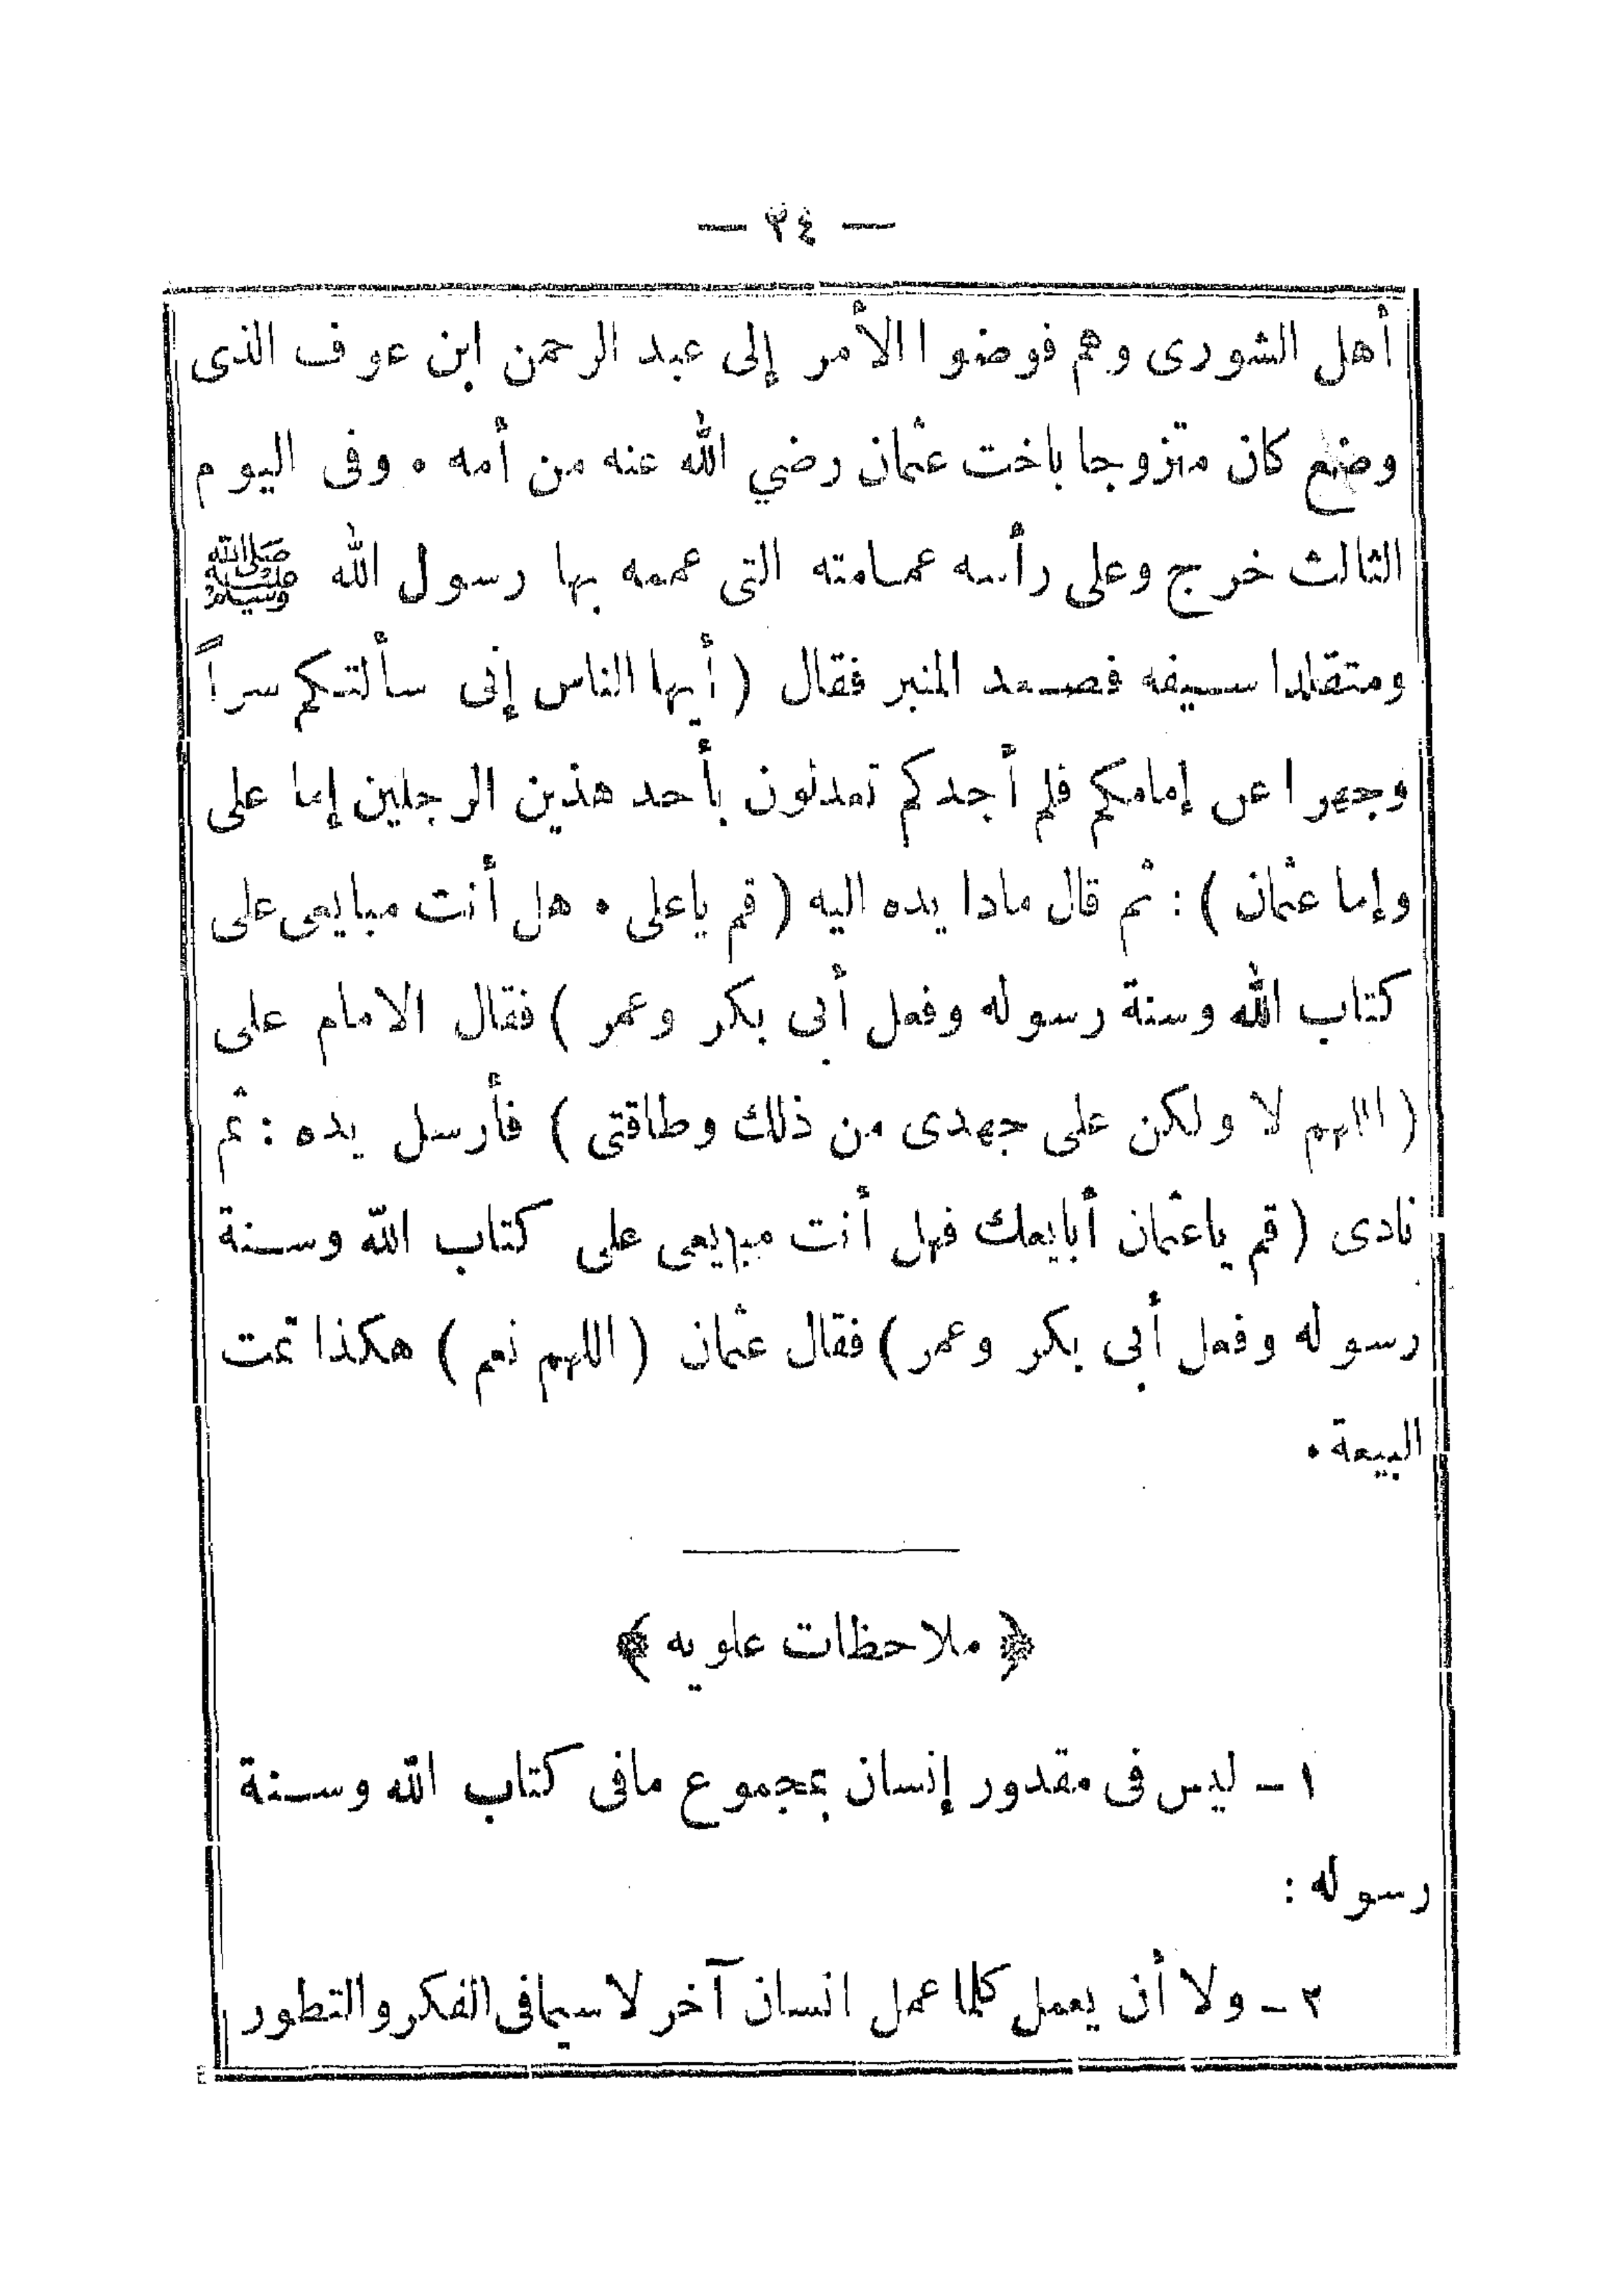 — ٢٤ —
أهل الشورى وهم فوضوا الأمر إلى عبد الرحمن ابن عوف الذى
وضع كان متزوجا باخت عثمان رضي الله عنه من أمه . وفى اليوم
الثالث خرج وعلى رأسه عمامته التى عممه بها رسول الله ﷺ
ومتقلدا سيفه فصعد المنبر فقال ( أيها الناس إنى سألتكم سراً
وجهرا عن إمامكم فلم أجدكم تعدلون بأحد هذين الرجلين إما على
وإما عثمان ) : ثم قال مادا يده اليه ( قم ياعلى . هل أنت مبايعى على
كتاب الله وسنة رسوله وفعل أبى بكر وعمر ) فقال الامام على
( اللهم لا ولكن على جهدى من ذلك وطاقتى ) فأرسل يده : ثم
نادى ( قم ياعثمان أبايعك فهل أنت مبايعى على كتاب الله وسنة
رسوله وفعل أبى بكر وعمر ) فقال عثمان ( اللهم نعم ) هكذا تمت
البيعة .
﴿ ملاحظات علويه ﴾
١ – ليس فى مقدور إنسان بمجموع مافى كتاب الله وسنة
رسوله :
٢ – ولا أن يعمل كلما عمل انسان آخر لاسيما فى الفكر والتطور